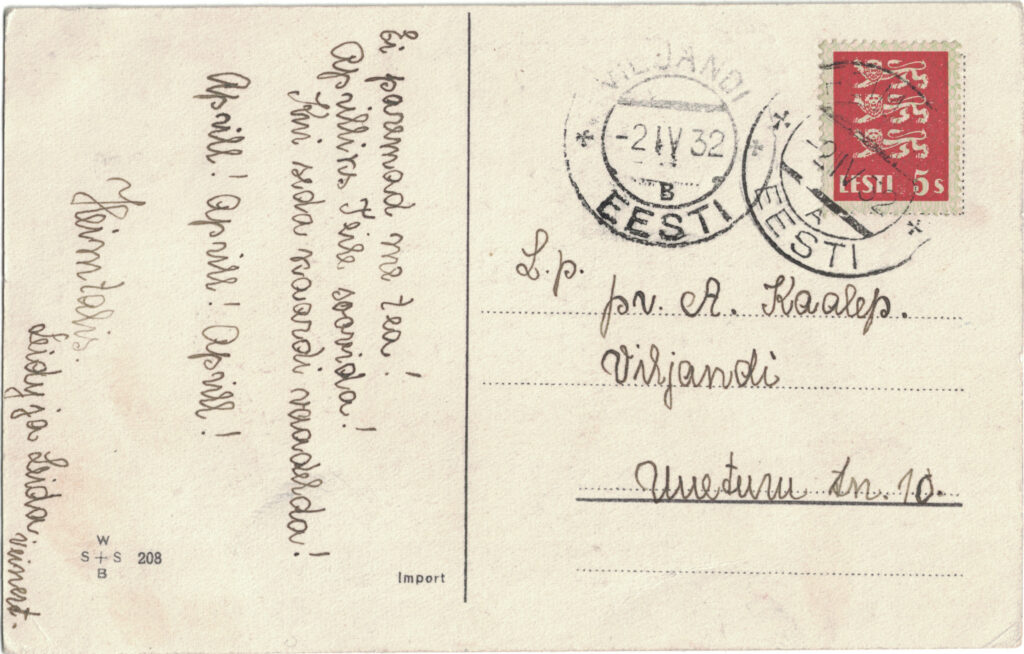 Ei paremad me tea!
Aprilliks Teile soovida!
Kui seda kaardi vaadelda!
Aprill! Aprill! Aprill!
Heimtalis.
Leidy ja Leida, Veinert.
W
S + S 208
B
Import
VILJANDI
-2 IV 32
B
EESTI
-2 IV 32
A
EESTI
EESTI 5 S
L. p.
pv. A. Kaalep.
Viljandi
Uueturu tn. 10.